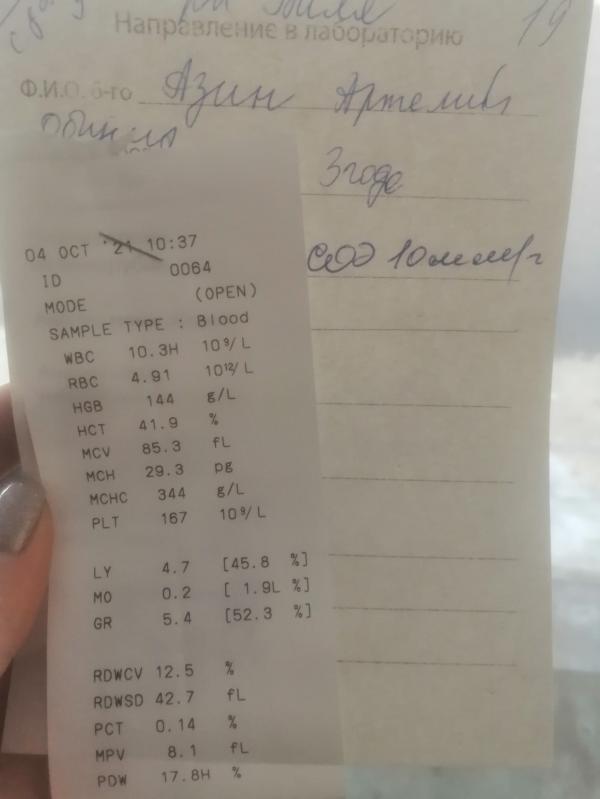 Направление в лабораторию
19
Ф.И.О. б-го Азин
3 года
СОЭ 10 мм/г
04 OCT '21 10:37
ID 0064
MODE (OPEN)
SAMPLE TYPE : Blood
WBC 10.3H 10⁹/L
RBC 4.91 10¹²/L
HGB 144 g/L
HCT 41.9 %
MCV 85.3 fL
MCH 29.3 pg
MCHC 344 g/L
PLT 167 10⁹/L
LY 4.7 [45.8 %]
MO 0.2 [ 1.9L %]
GR 5.4 [52.3 %]
RDWCV 12.5 %
RDWSD 42.7 fL
PCT 0.14 %
MPV 8.1 fL
PDW 17.8H %